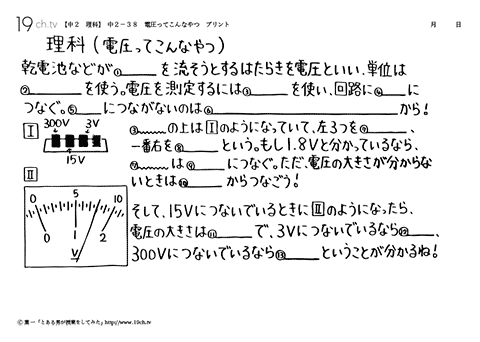 19ch.tv 【中2 理科】 中2-38 電圧ってこんなやつ プリント 月 日
理科(電圧ってこんなやつ)
乾電池などが①____を流そうとするはたらきを電圧といい、単位は
②____を使う。電圧を測定するには③____を使い、回路に④____に
つなぐ。⑤____につながないのは⑥____から!
Ⅰ 300V 3V
15V
③____の上はⅠのようになっていて、左3つを⑦____、
一番右を⑧____という。もし1.8Vと分かっているなら、
⑦____は⑨____につなぐ。ただ、電圧の大きさが分からな
いときは⑩____からつなごう!
Ⅱ
0 5 10
0 1 2
V
そして、15VにつないでいるときにⅡのようになったら、
電圧の大きさは⑪____で、3Vにつないでいるなら⑫____、
300Vにつないでいるなら⑬____ということが分かるね!
©葉一「とある男が授業をしてみた」http://www.19ch.tv